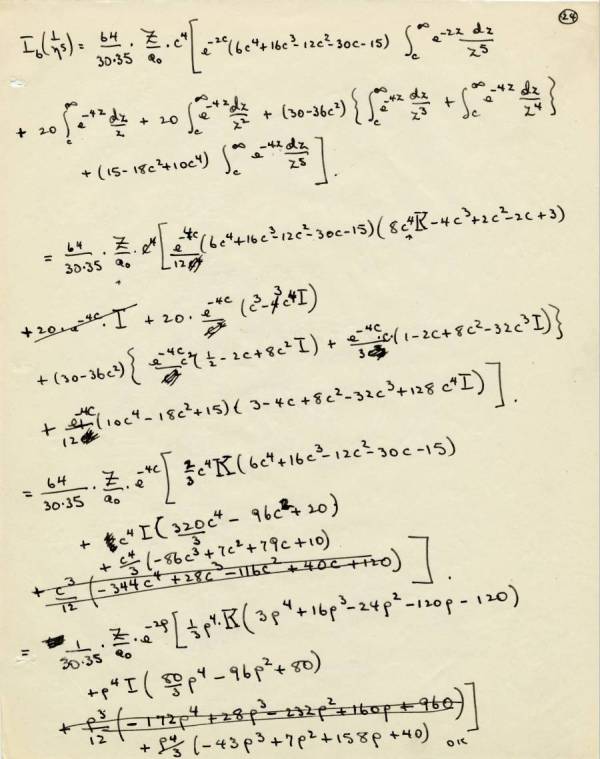 24
I_b(1/η^5) = 64/30·35 · Z/a_0 · c^4 [ e^{-2c} (6c^4+16c^3-12c^2-30c-15) ∫_c^∞ e^{-2z} dz/z^5
+ 20 ∫_c^∞ e^{-4z} dz/z + 20 ∫_c^∞ e^{-4z} dz/z^2 + (30-36c^2) { ∫_c^∞ e^{-4z} dz/z^3 + ∫_c^∞ e^{-4z} dz/z^4 }
+ (15-18c^2+10c^4) ∫_c^∞ e^{-4z} dz/z^5 ].
= 64/30·35 · Z/a_0 · c^4 [ e^{-4c}/12 (6c^4+16c^3-12c^2-30c-15)(8c^4K-4c^3+2c^2-2c+3)
+ 20·e^{-4c}·I + 20·e^{-4c} (c^3-4c^4I)
+ (30-36c^2) { e^{-4c} c^2 (1/2-2c+8c^2I) + e^{-4c}·c/3 (1-2c+8c^2-32c^3I) }
+ e^{-4c}/12 (10c^4-18c^2+15)(3-4c+8c^2-32c^3+128c^4I) ].
= 64/30·35 · Z/a_0 · e^{-4c} [ 2/3 c^4K (6c^4+16c^3-12c^2-30c-15)
+ c^4I (320/3 c^4 - 96c^2+20)
+ c^4/3 (-86c^3+7c^2+79c+10)
+ c^3/12 (-344c^4+28c^3-116c^2+40c+120) ].
= 1/30·35 · Z/a_0 · e^{-2ρ} [ 1/3 ρ^4·K (3ρ^4+16ρ^3-24ρ^2-120ρ-120)
+ρ^4I (80/3 ρ^4-96ρ^2+80)
+ ρ^3/12 (-172ρ^4+28ρ^3-232ρ^2+160ρ+960) ]
+ ρ^4/3 (-43ρ^3+7ρ^2+158ρ+40) OK